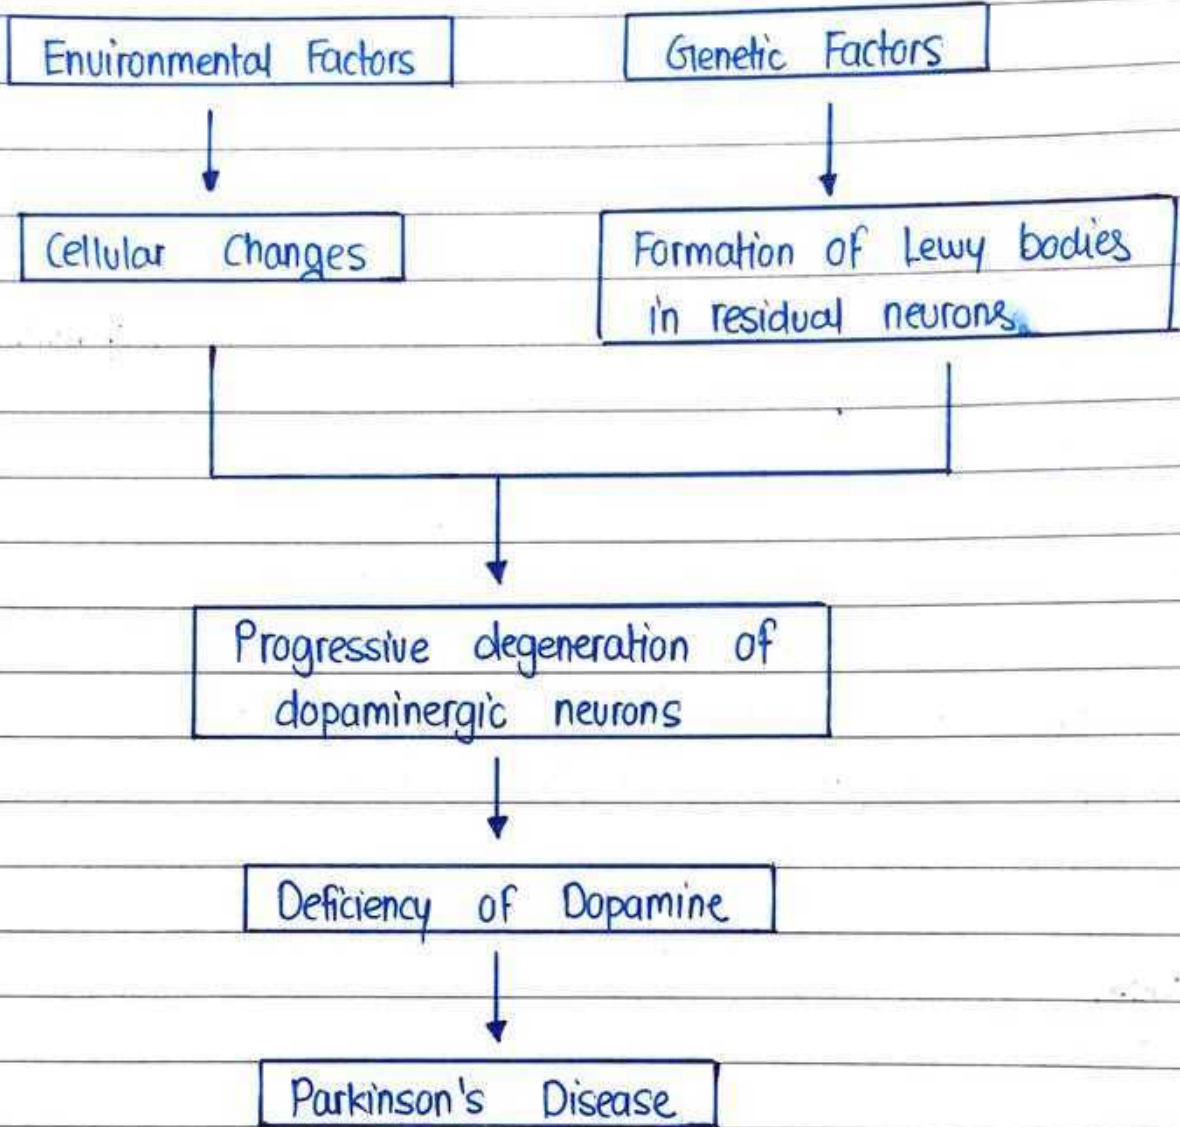 Environmental Factors
Genetic Factors
Cellular Changes
Formation of Lewy bodies
in residual neurons.
Progressive degeneration of
dopaminergic neurons
Deficiency of Dopamine
Parkinson's Disease